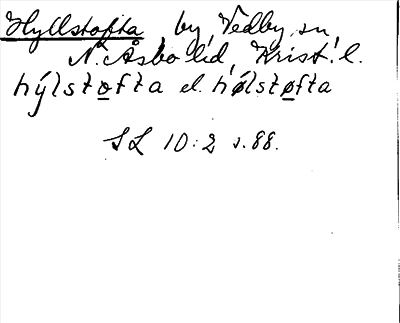 Hyllstofta, by, Vedby sn,
N. Åsbo hd, Krist. l.
hýlstofta el. hǿlstøfta
SL 10:2 s. 88.